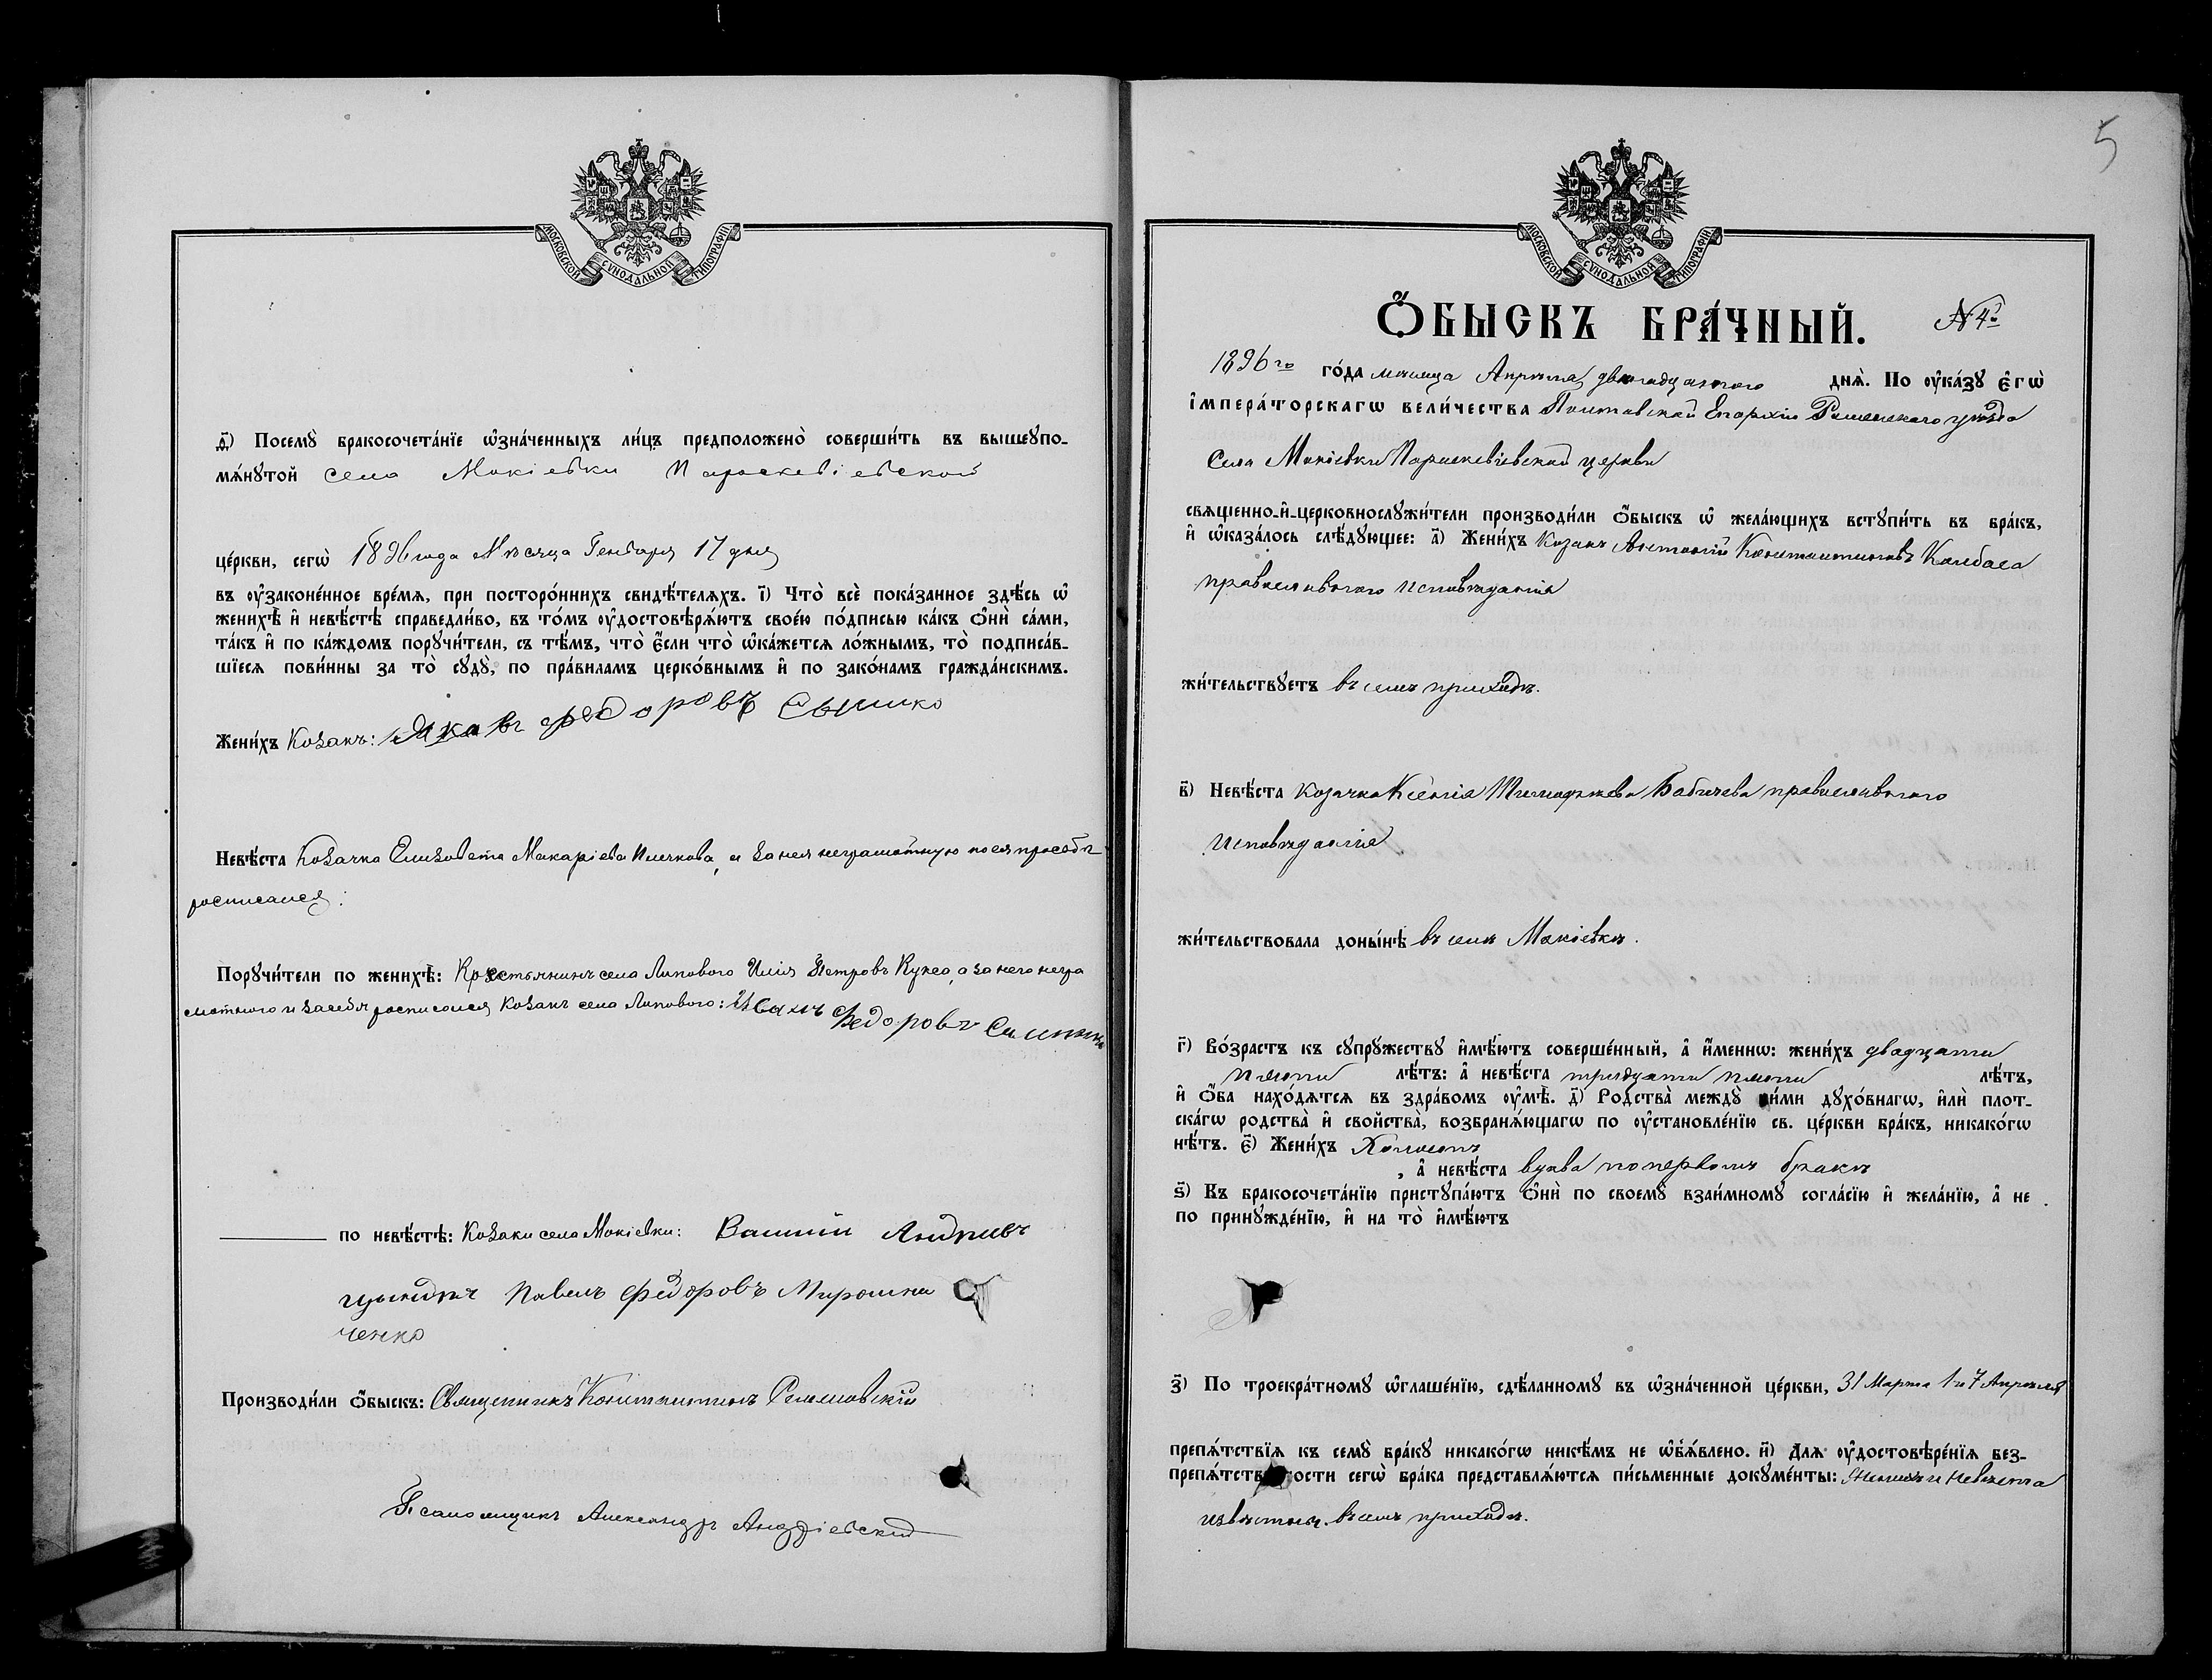 МОСКОВСКОЙ СУНОДАЛЬНОЙ ТИПОГРАФІИ
д҃) Посемꙋ̀ бракосочета́нїе ѡ҆зна́ченныхъ ли́цъ предположено̀ соверши́ть въ вышеꙋпо-
мѧ́нꙋтой села Мокіевки Параскевіевской
це́ркви, сегѡ̀ 1896 года Мѣсяца Генваря 17 дня
въ ᲂу҆законе́нное вре́мѧ, при посторо́ннихъ свидѣ́телѧхъ. і҃) Что̀ всѐ пока́занное здѣ́сь ѡ҆
женихѣ̀ и҆ невѣ́стѣ справедли́во, въ то́мъ ᲂу҆достовѣрѧ́ютъ свое́ю по́дписью ка́къ ѻ҆нѝ са́ми,
та́къ и҆ по ка́ждомъ порꙋчи́тели, съ тѣ́мъ, что̀ є҆́сли что̀ ѡ҆ка́жетсѧ ло́жнымъ, то̀ подписа́в-
шїесѧ пови́нны за то̀ сꙋдꙋ̀, по пра́виламъ церко́внымъ и҆ по зако́намъ гражда́нскимъ.
Жени́хъ Козакъ: Яковъ Федоровъ
Невѣ́ста Козачка Елизавета Макаріева а за нея неграмотную по ея просьбѣ
росписался:
Порꙋчи́тели по женихѣ̀: Крестьянинъ села Липового Илія Петровъ а за него негра
мотного и за себя росписался Козакъ села Липового: Иванъ Федоровъ
по невѣ́стѣ: Козаки села Мокіевки: Василий Андріевъ
Павелъ Федоровъ Мирошни
ченко
Производи́ли ѻ҆́быскъ: Священникъ Константинъ
Псаломщикъ Александръ Андріевский
5
МОСКОВСКОЙ СУНОДАЛЬНОЙ ТИПОГРАФІИ
Ѻ҆́БЫСКЪ БРА́ЧНЫЙ. №4й
1896го го́да месяца Апрѣля двенадцатого днѧ̀. По ᲂу҆ка́зꙋ є҆гѡ̀
і҆мпера́торскагѡ вели́чества Полтавской Епархіи Роменского уѣзда
Села Мокіевки Параскевіевской церкви
свѧщенно-и҆-церковнослꙋжи́тели производи́ли ѻ҆́быскъ ѡ҆ жела́ющихъ встꙋпи́ть въ бра́къ,
и҆ ѡ҆каза́лось слѣ́дꙋющее: а҃) Жени́хъ Козакъ Антоній Константиновъ Колбаса
православного исповѣданія
жи́тельствꙋетъ въ семъ приходѣ.
в҃) Невѣ́ста козачка Ксенія Тимофѣева Бабичева православного
исповѣданія
жи́тельствовала доны́нѣ въ селѣ Мокіевкѣ.
г҃) Во́зрастъ къ сꙋпрꙋ́жествꙋ и҆мѣ́ютъ соверше́нный, а҆ и҆́меннѡ: жени́хъ двадцати
пяти лѣ́тъ: а҆ невѣ́ста тридцати пяти лѣ́тъ,
и҆ ѻ҆́ба нахо́дѧтсѧ въ здра́вомъ ᲂу҆мѣ̀. д҃) Родства̀ междꙋ̀ ни́ми дꙋхо́внагѡ, и҆лѝ плот-
ска́гѡ родства̀ и҆ свойства̀, возбранѧ́ющагѡ по ᲂу҆становле́нїю св. це́ркви бра́къ, никако́гѡ
нѣ́тъ. є҃) Жени́хъ Холостъ
, а҆ невѣ́ста вдова по первомъ бракѣ
ѕ҃) Къ бракосочета́нїю пристꙋпа́ютъ ѻ҆нѝ по своемꙋ̀ взаи́мномꙋ согла́сїю и҆ жела́нїю, а҆ не
по принꙋжде́нїю, и҆ на то̀ и҆мѣ́ютъ
з҃) По троекра́тномꙋ ѡ҆глаше́нїю, сдѣ́ланномꙋ въ ѡ҆зна́ченной це́ркви, 31 Марта 1 и 7 Апрѣля
препѧ́тствїѧ къ семꙋ̀ бра́кꙋ никако́гѡ никѣ́мъ не ѡ҆б̾ѧ́влено. и҃) Длѧ ᲂу҆достовѣре́нїѧ без-
препѧ́тственности сегѡ̀ бра́ка представлѧ́ютсѧ пи́сьменные докꙋме́нты: Женихъ и невѣста
извѣстны въ семъ приходѣ.